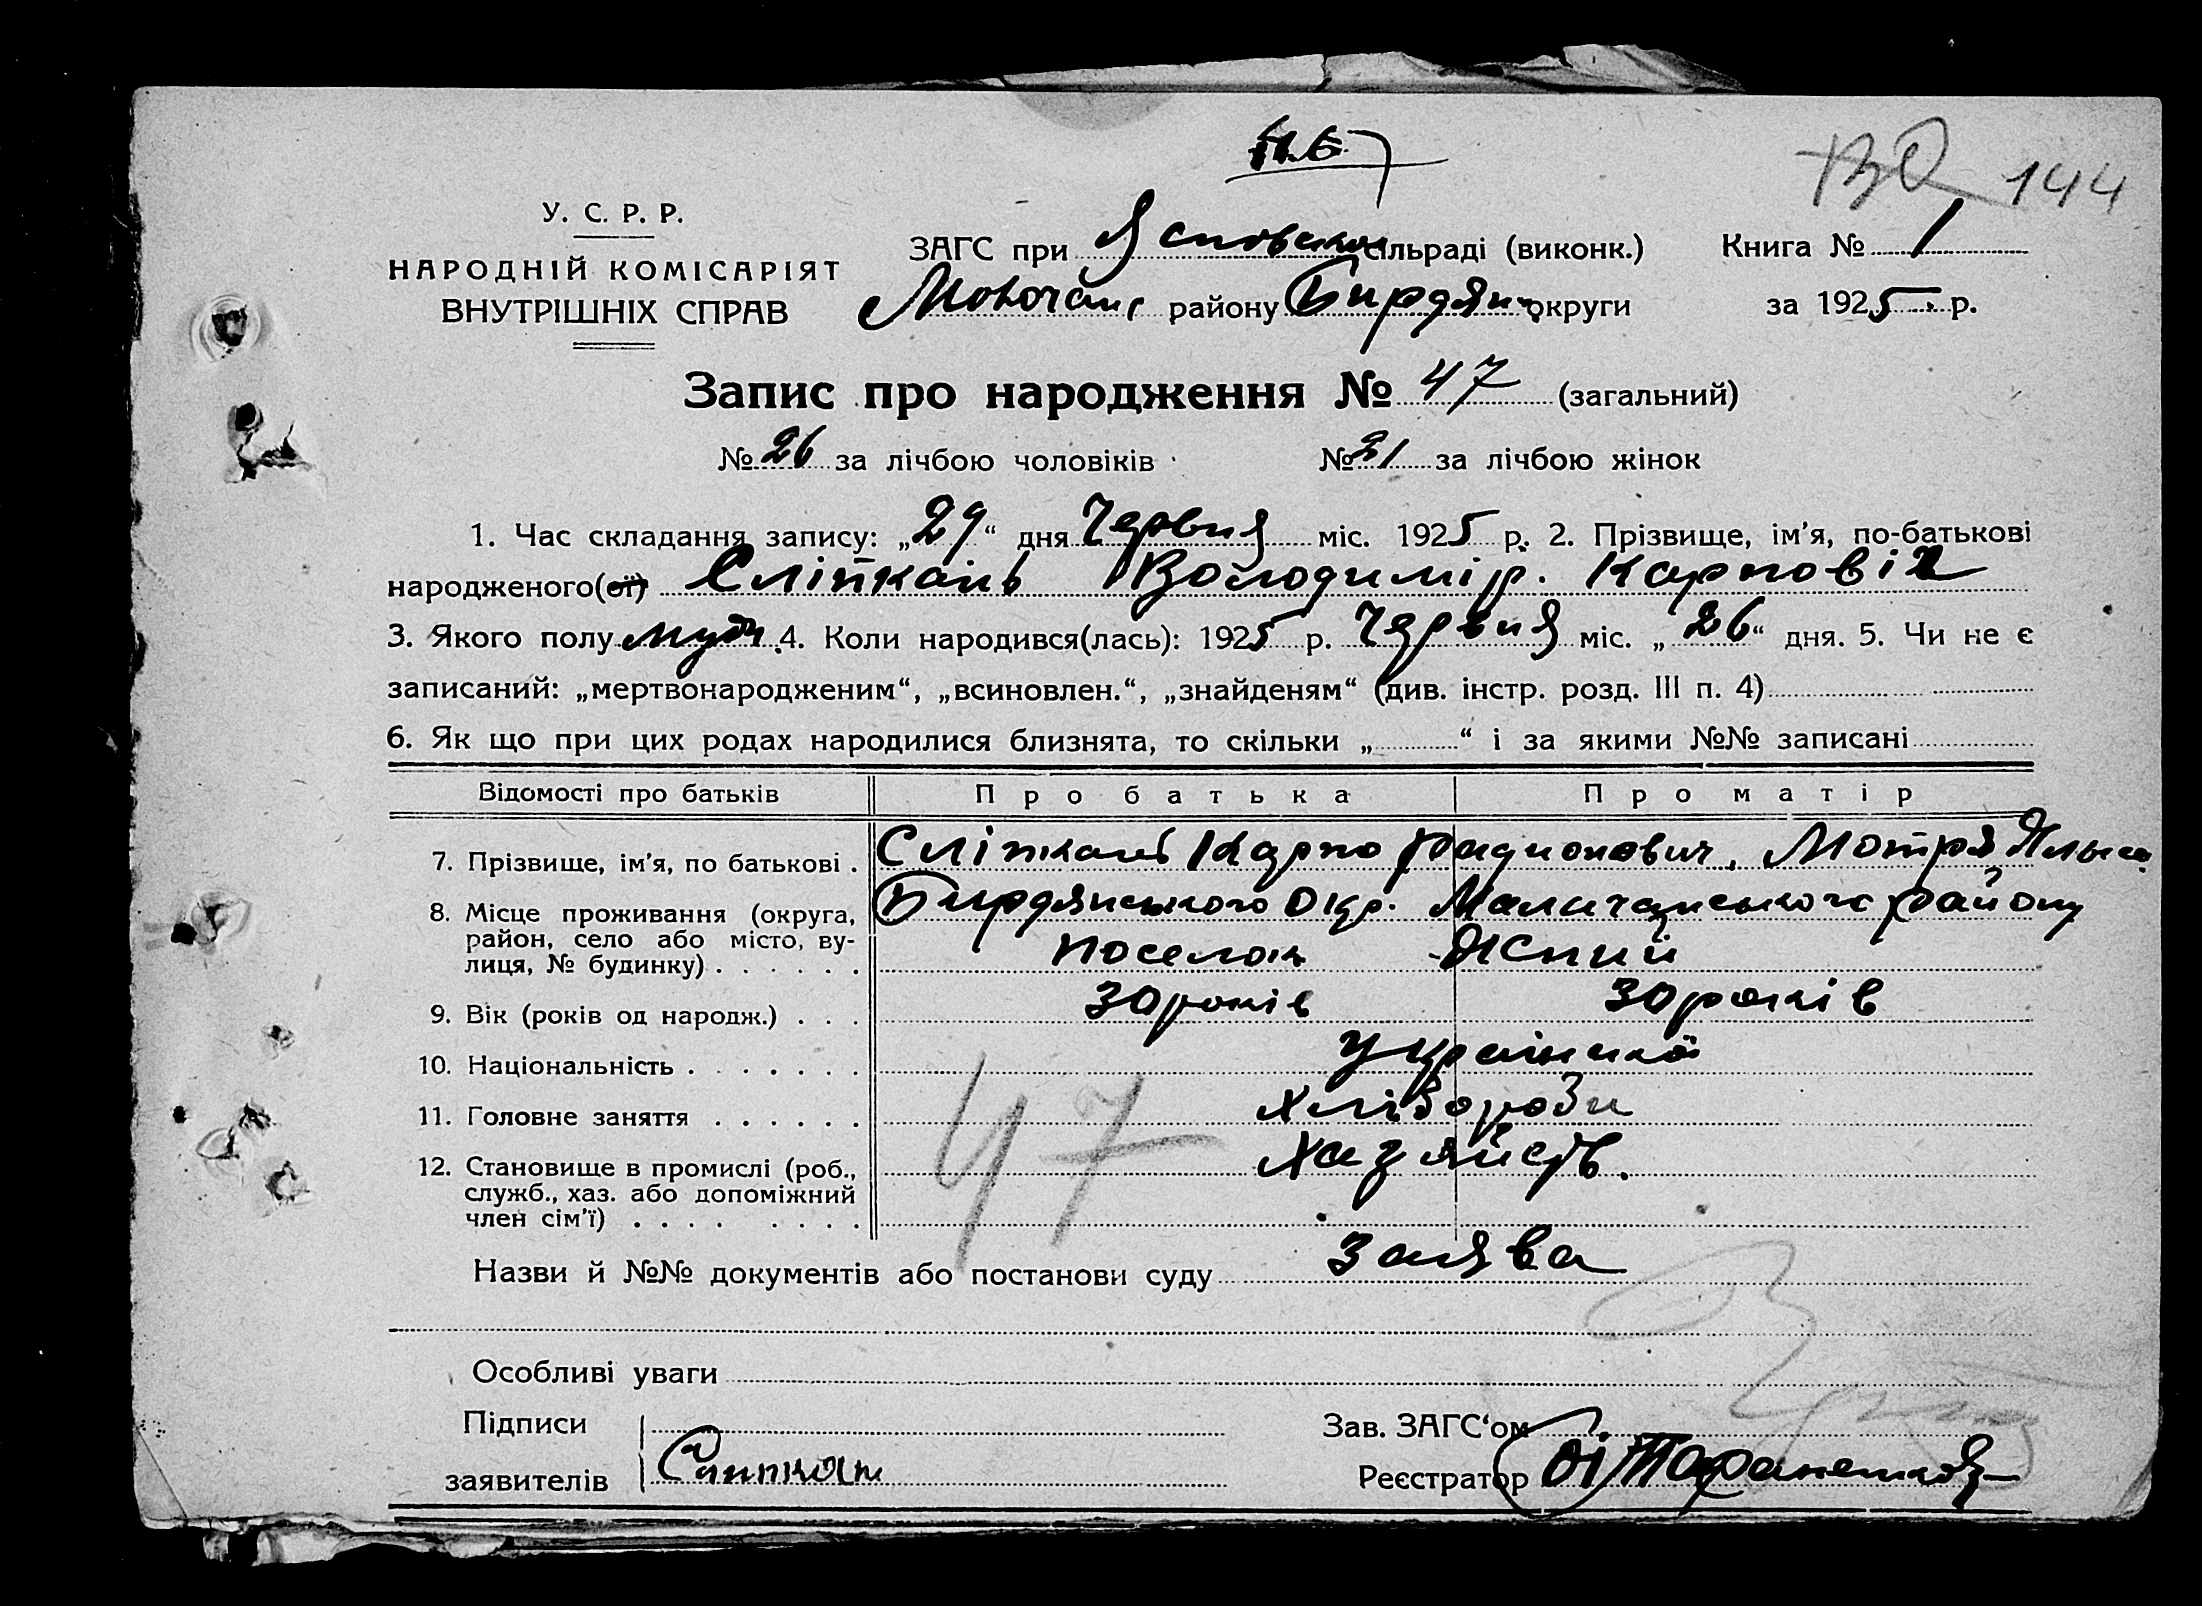 144
У. С. Р. Р.
НАРОДНІЙ КОМІСАРІЯТ
ВНУТРІШНІХ СПРАВ
ЗАГС при сільраді (виконк.) Книга № 1
району Бирдян округи за 1925 р.
Запис про народження № 47 (загальний)
№ 26 за лічбою чоловіків № 21 за лічбою жінок
1. Час складання запису: „29“ дня Червня міс. 1925 р. 2. Прізвище, ім'я, по-батькові
народженого(ої) Сліпкань Володимір. Карповіч
3. Якого полу муж. 4. Коли народився(лась): 1925 р. Червня міс. „26“ дня. 5. Чи не є
записаний: „мертвонародженим“, „всиновлен.“, „знайденям“ (див. інстр. розд. III п. 4)
6. Як що при цих родах народилися близнята, то скільки „ “ і за якими №№ записані
Відомості про батьків Про батька Про матір
7. Прізвище, ім'я, по батькові . Сліпкань Карпо Радионович, Мотря
8. Місце проживання (округа, Бирдянського Окр. району
район, село або місто, ву-
лиця, № будинку) . . . . . . поселок Ясний
9. Вік (років од народж.) . . . 30 років 30 років
10. Національність . . . . . . .
11. Головне заняття . . . . . . Хлібороби
12. Становище в промислі (роб.,
служб., хаз. або допоміжний
член сім'ї) . . . . . . . .
47
Назви й №№ документів або постанови суду Заява
Особливі уваги
Підписи Зав. ЗАГС‘ом
заявителів Реєстратор